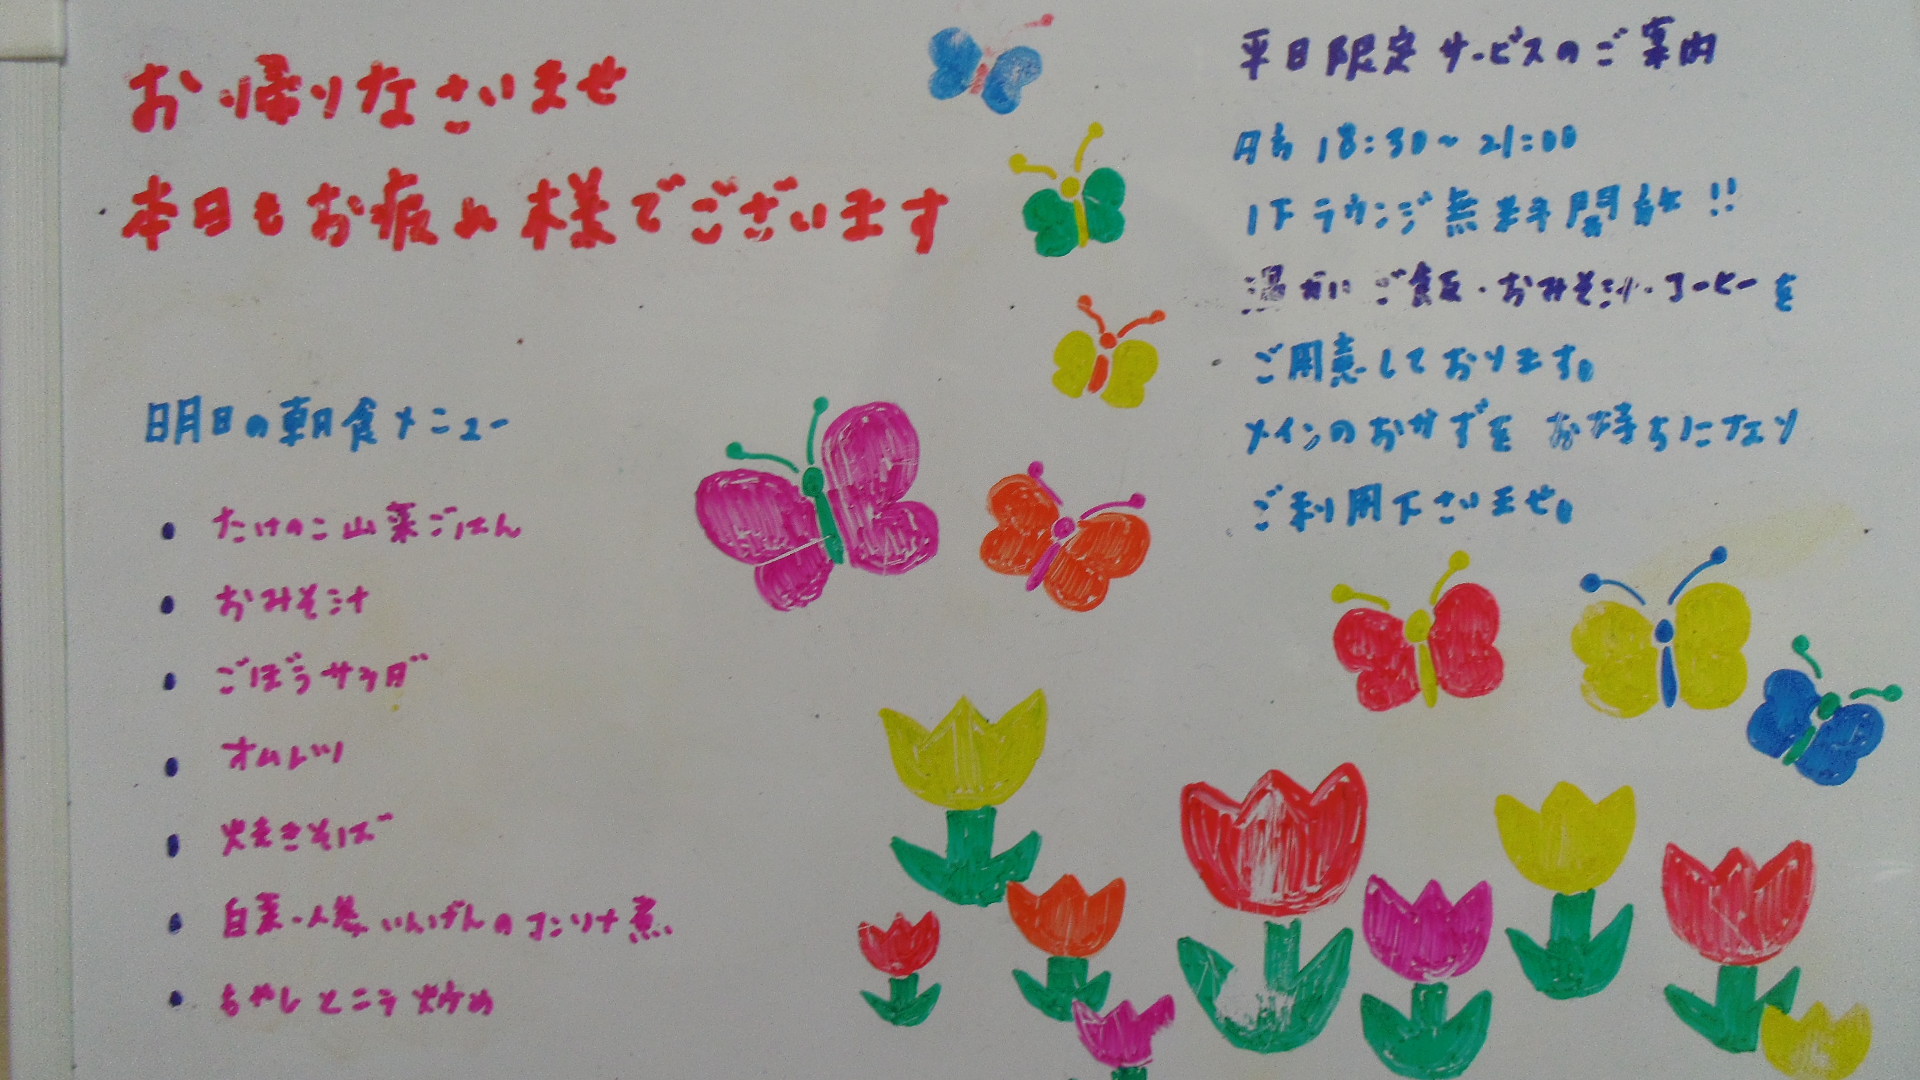 お帰りなさいませ
本日もお疲れ様でございます
明日の朝食メニュー
• たけのこ山菜ごはん
• おみそ汁
• ごぼうサラダ
• オムレツ
• 焼きそば
• 白菜・人参、いんげんのコンソメ煮
• もやしとニラ炒め
平日限定サービスのご案内
18:30～21:00
1Fラウンジ無料開放!!
温かいご飯・おみそ汁・コーヒーを
ご用意しております。
メインのおかずをお持ちになり
ご利用下さいませ。